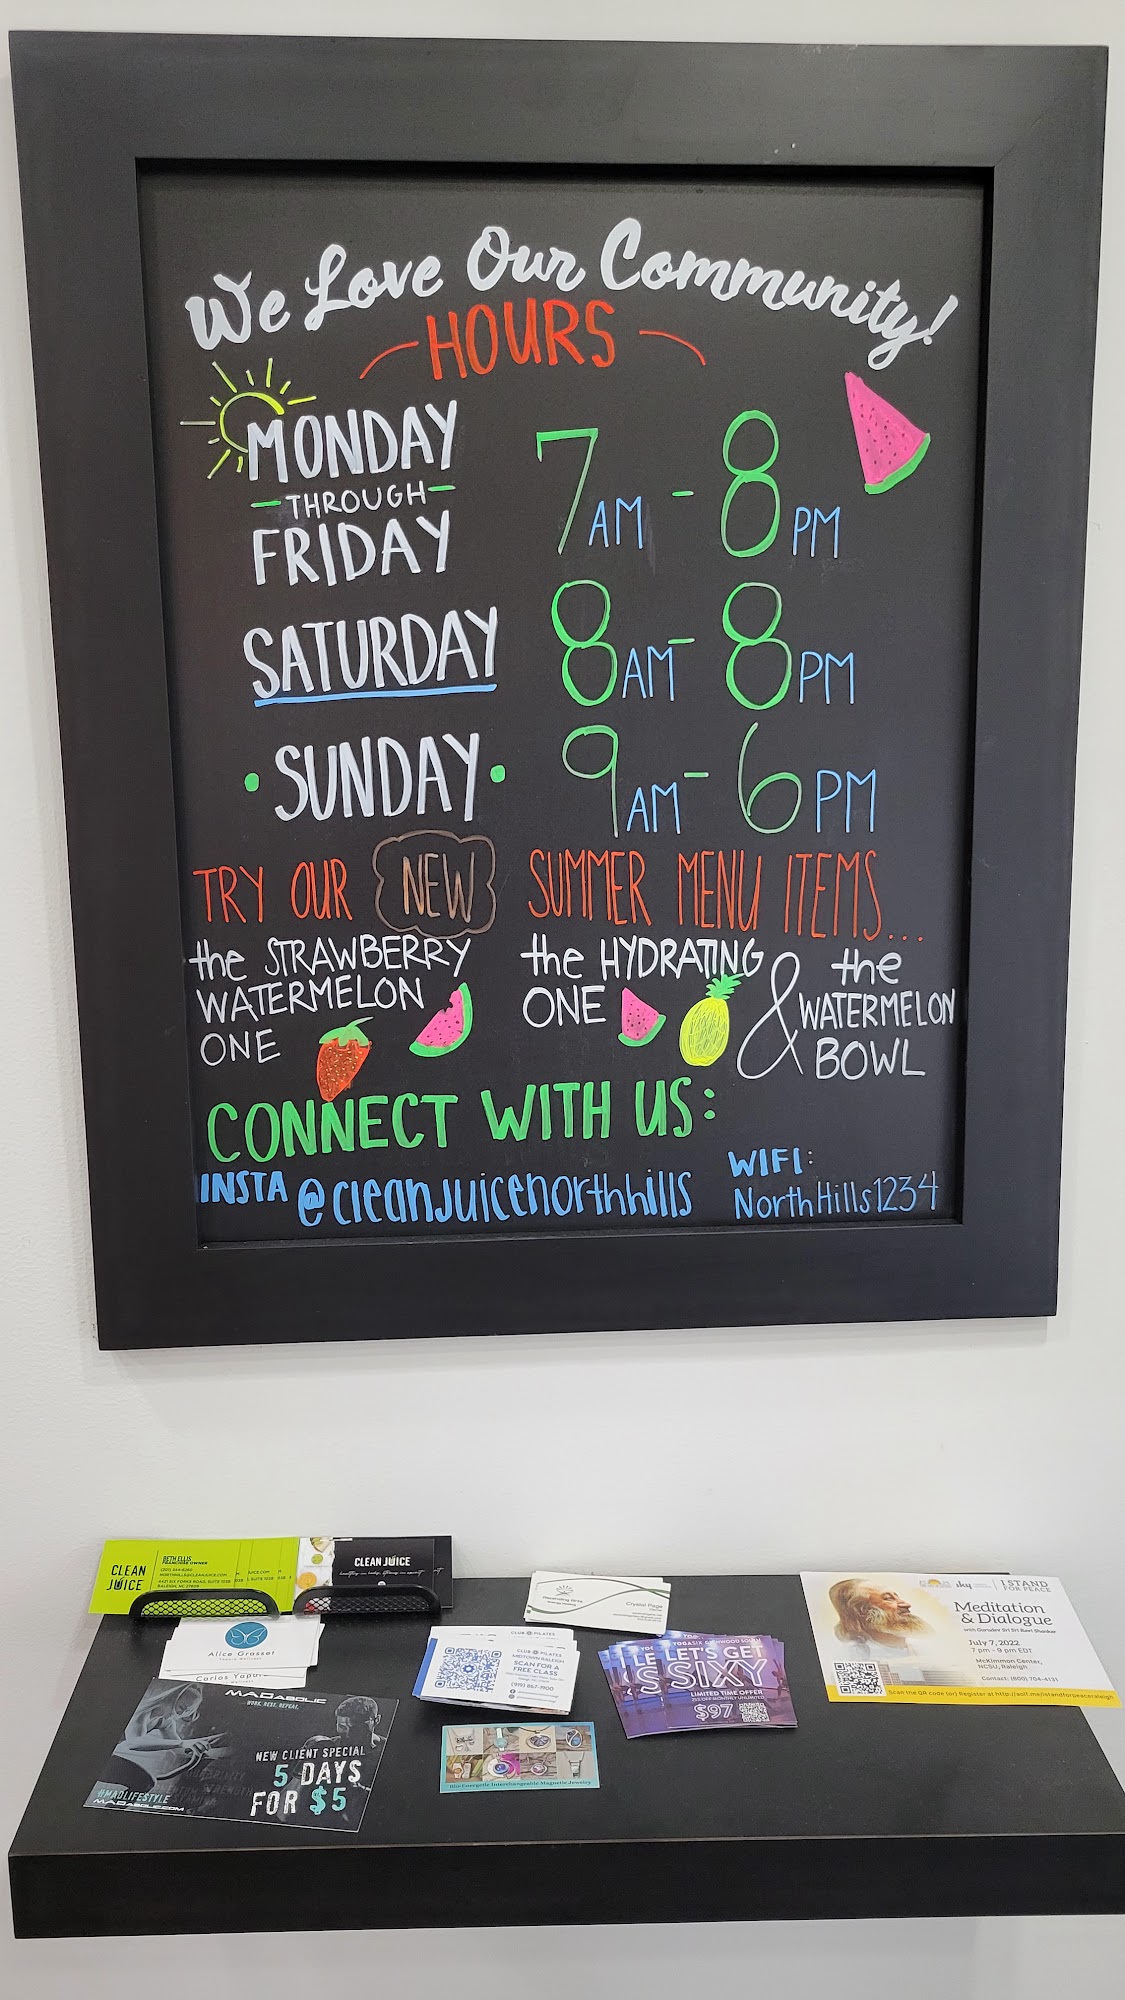 We Love Our Community!
HOURS
MONDAY
THROUGH
FRIDAY
7AM - 8PM
SATURDAY
8AM - 8PM
SUNDAY
9AM - 6PM
TRY OUR NEW SUMMER MENU ITEMS...
the STRAWBERRY
WATERMELON
ONE
the HYDRATING
ONE
& the
WATERMELON
BOWL
CONNECT WITH US:
INSTA @cleanjuicenorthhills
WIFI:
NorthHills1234
CLEAN
JUICE
BETH ELLIS
FRANCHISE OWNER
CLEAN JUICE
Alice Grassof
Carlos Yapur
MADABOLIC
WORK. REST. REPEAT.
NEW CLIENT SPECIAL
5 DAYS
FOR $5
#MADLIFESTYLE
MADABOLIC.COM
Crystal Page
CLUB PILATES
CLUB PILATES
MIDTOWN RALEIGH
SCAN FOR A
FREE CLASS
(919) 867-1900
YOGASIX GLENWOOD SOUTH
LET'S GET
SIXY
LIMITED TIME OFFER
$97
Blu Energetic Interchangeable Magnetic Jewelry
I STAND
FOR PEACE
Meditation
& Dialogue
with Gurudev Sri Sri Ravi Shankar
July 7, 2022
7 pm - 9 pm EDT
McKimmon Center,
NCSU, Raleigh
Contact: (800) 704-4131
Scan the QR code (or) Register at http://aolf.me/istandforpeaceraleigh